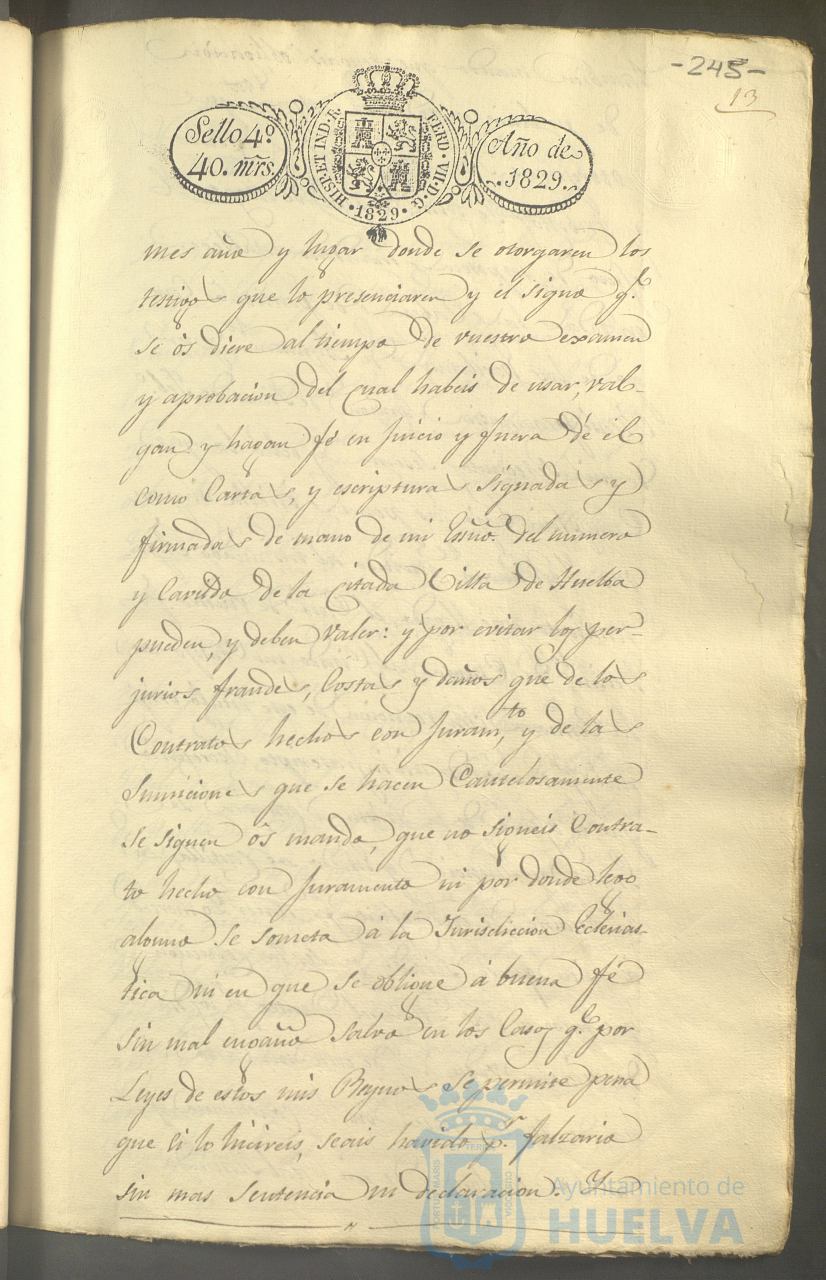 -245-
13
Sello 4º.
40. mrs.
HISP. ET IND. R.
FERD. VII. D. G.
1829
Año de
1829.
mes año y lugar donde se otorgaren los
testigos que lo presenciaren y el signo q.e
se ós diere al tiempo de vuestro examen
y aprobacion del cual habeis de usar, val-
gan y hagan fé en Juicio y fuera dé él
como Cartas, y escripturas signadas y
firmadas de mano de mi Essño. del numero
y Cavildo de la Citada Villa de Huelba
pueden, y deben valer: y por evitar los per-
jurios fraudes, Costas y daños que de los
Contratos hechos con Juram.to, y de las
Sumiciones que se hacen Cautelosamente
se siguen ós mando, que no signeis Contra-
to hecho con Juramento ni por donde lego
alguno se someta á la Jurisdiccion Ecleriás-
tica ni en que se obligue á buena fé
sin mal engaño salvo en los Casos q.e por
Leyes de estos mis Reynos se permite pena
que si lo hicireis, seais havido p.r falzario
sin mas sentencia ni declaracion. Y
Ayuntamiento de
HUELVA